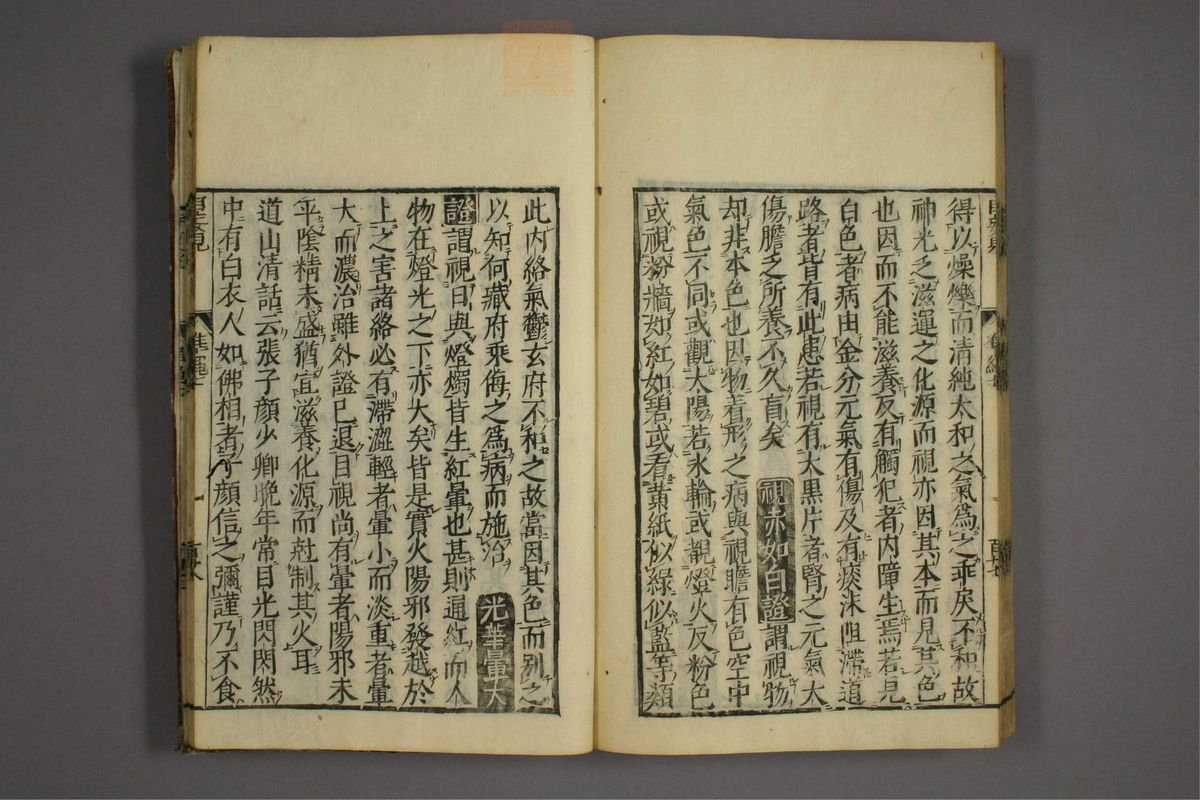 得以燥爍而清純太和之氣爲之乖戾不和故
神光乏滋運之化源而視亦因其本而見其色
也因而不能滋養反有觸犯者內障生焉若見
白色者病由金分元氣有傷及有痰沫阻滯道
路者皆有此患若視有大黑片者腎之元氣大
傷膽乏所養不久盲矣 視赤如白證 謂視物
却非本色也因物着形之病與視瞻有色空中
氣色不同或觀太陽若氷輪或覩燈火反粉色
或視粉牆如紅如碧或看黃紙似綠似藍等類
此內絡氣鬱玄府不和之故當因其色而別之
以知何臟府乘侮之爲病而施治 光華暈大
證謂視日與燈燭皆生紅暈也甚則通紅而人
物在燈光之下亦大矣皆是實火陽邪發越於
上之害諸絡必有滯澀輕者暈小而淡重者暈
大而濃治雖外證已退目視尚有暈者陽邪未
平陰精未盛猶宜滋養化源而尅制其火耳
道山清話云張子顏少卿晚年常目光閃閃然
中有白衣人如佛相者子顏信之彌謹乃不食